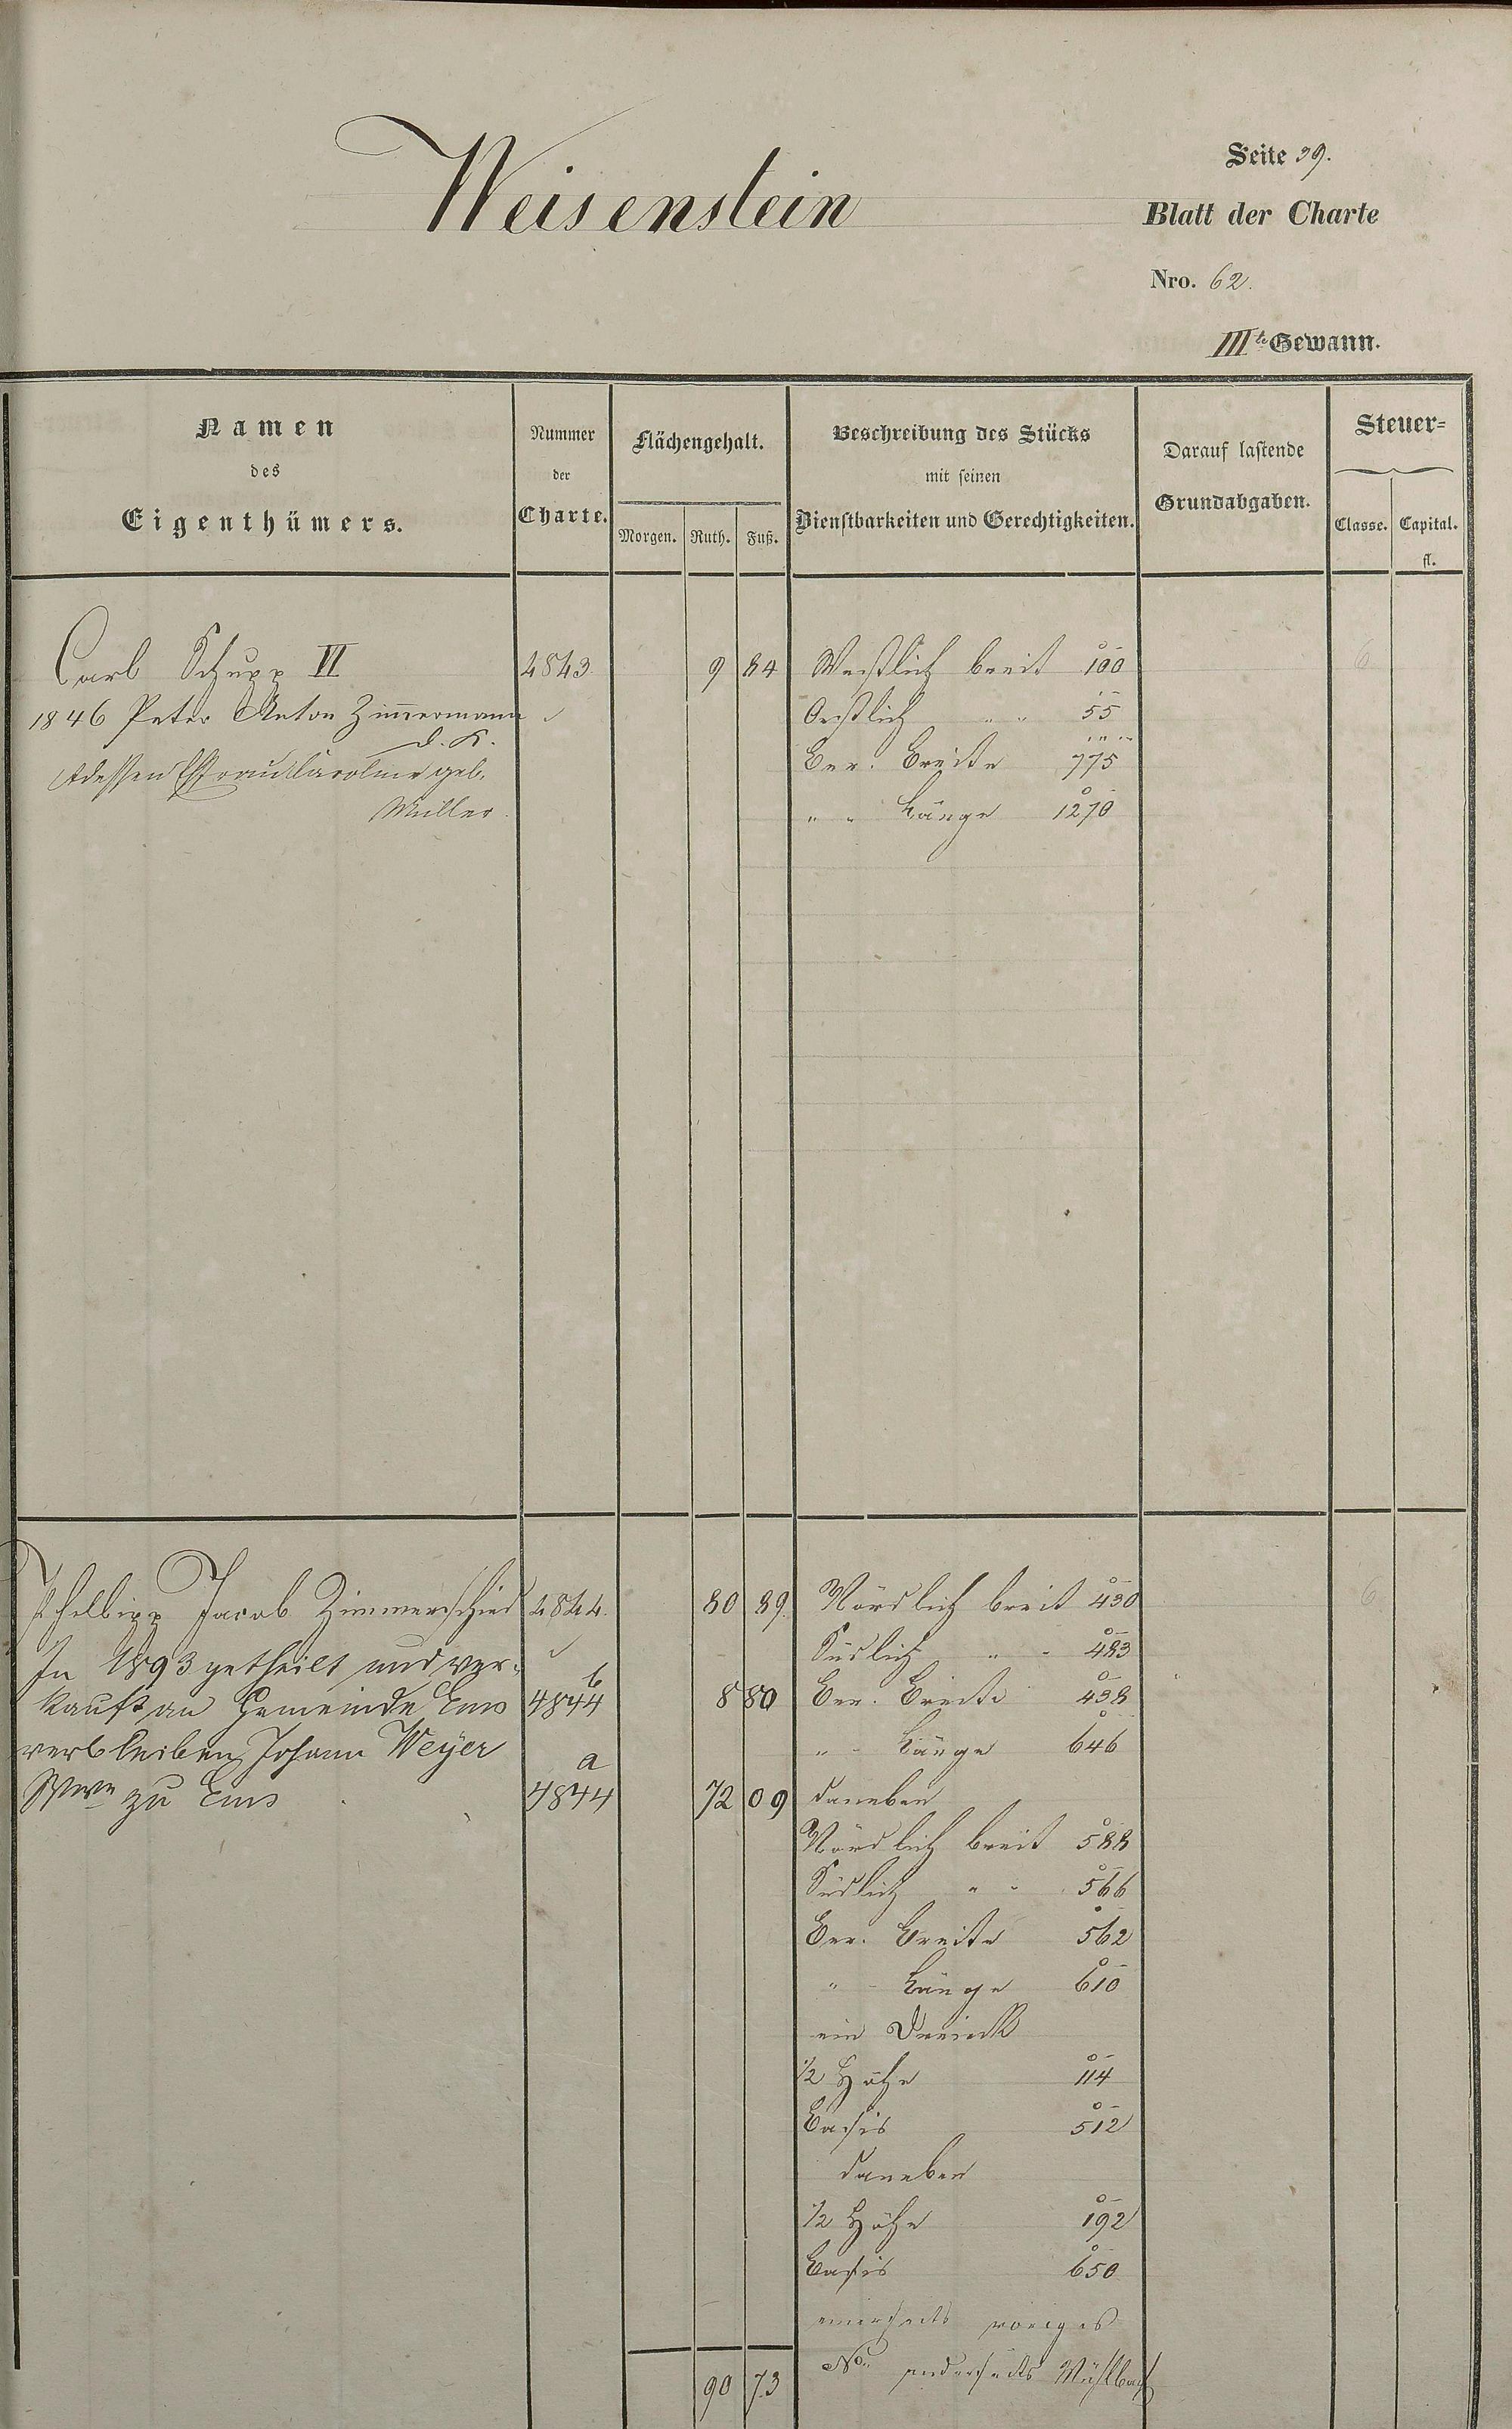 Weisenstein
Seite 39.
Blatt der Charte
Nro. 62.
III te Gewann.
Namen des Eigenthümers.
Nummer der Charte.
Flächengehalt.
Morgen. Ruth. Fuß.
Beschreibung des Stücks
mit seinen
Dienstbarkeiten und Gerechtigkeiten.
Darauf lastende
Grundabgaben.
Steuer=
Classe. Capital.
fl.
Carl Schupp VI 4843. 9 84 Westlich breit 100 6
1846 Peter Anton Zimmermann Oestlich " " 55
d. K.
Ber. Breite 775
dessen Ehefrau Caroline geb.
Müller
" " Länge 1270
Phillipp Jacob Zimmerschied 4844. 80 89. Nördlich breit 430 6
Südlich " " 483
In 1893 getheilt und ver-
kauft an Gemeinde Ems 4844 b 8 80 Ber. Breite 438
verbleiben Johann Weyer " " Länge 646
Wwe zu Ems 4844 a 72 09 daneben
Nördlich breit 588
Südlich " " 566
Ber. Breite 562
" " Länge 610
ein Dreieck
1/2 Höhe 114
Basis 512
daneben
1/2 Höhe 192
Basis 650
einerseits voriges
No. anderseits Mühlbach
90 73